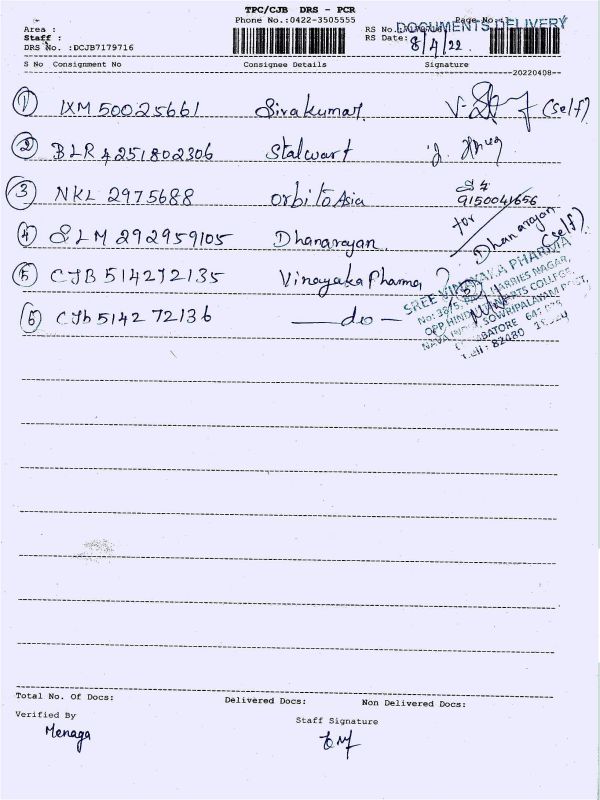 TPC/CJB DRS - PCR
Phone No.:0422-3505555
Page No.:
Area :
Staff :
DRS No. :DCJB7179716
RS No.:
DOCUMENTS DELIVERY
RS Date: 8/4/22.
S No Consignment No Consignee Details Signature
20220408
1 IXM 500 25661 Sivakumar. (self)
2 BLR 4251802306 Stalwart
3 NKL 2975688 Orbito Asia
9150041656
4 SLM 292959105 Dhanarayan. for Dhanarayan (self)
5 CJB 514272135 Vinayaka Pharma
6 CJb 5142 72136 — do —
SREE VINAYAKA PHARMA
HARRIES NAGAR,
OPP. HINDUSTAN ARTS COLLEGE,
NAVA INDIA, SOWRIPALAYAM POST,
COIMBATORE
Total No. Of Docs: Delivered Docs: Non Delivered Docs:
Verified By Staff Signature
Menaga